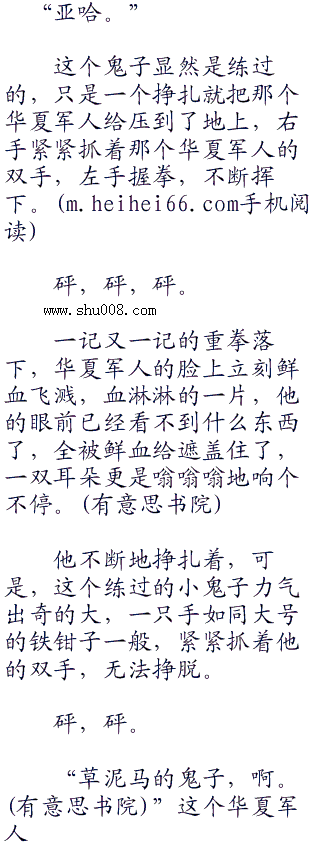 “亚哈。”
这个鬼子显然是练过
的，只是一个挣扎就把那个
华夏军人给压到了地上，右
手紧紧抓着那个华夏军人的
双手，左手握拳，不断挥
下。(m.heihei66.com手机阅
读)
砰，砰，砰。
www.shu008.com
一记又一记的重拳落
下，华夏军人的脸上立刻鲜
血飞溅，血淋淋的一片，他
的眼前已经看不到什么东西
了，全被鲜血给遮盖住了，
一双耳朵更是嗡嗡嗡地响个
不停。(有意思书院)
他不断地挣扎着，可
是，这个练过的小鬼子力气
出奇的大，一只手如同大号
的铁钳子一般，紧紧抓着他
的双手，无法挣脱。
砰，砰。
“草泥马的鬼子，啊。
(有意思书院)”这个华夏军
人